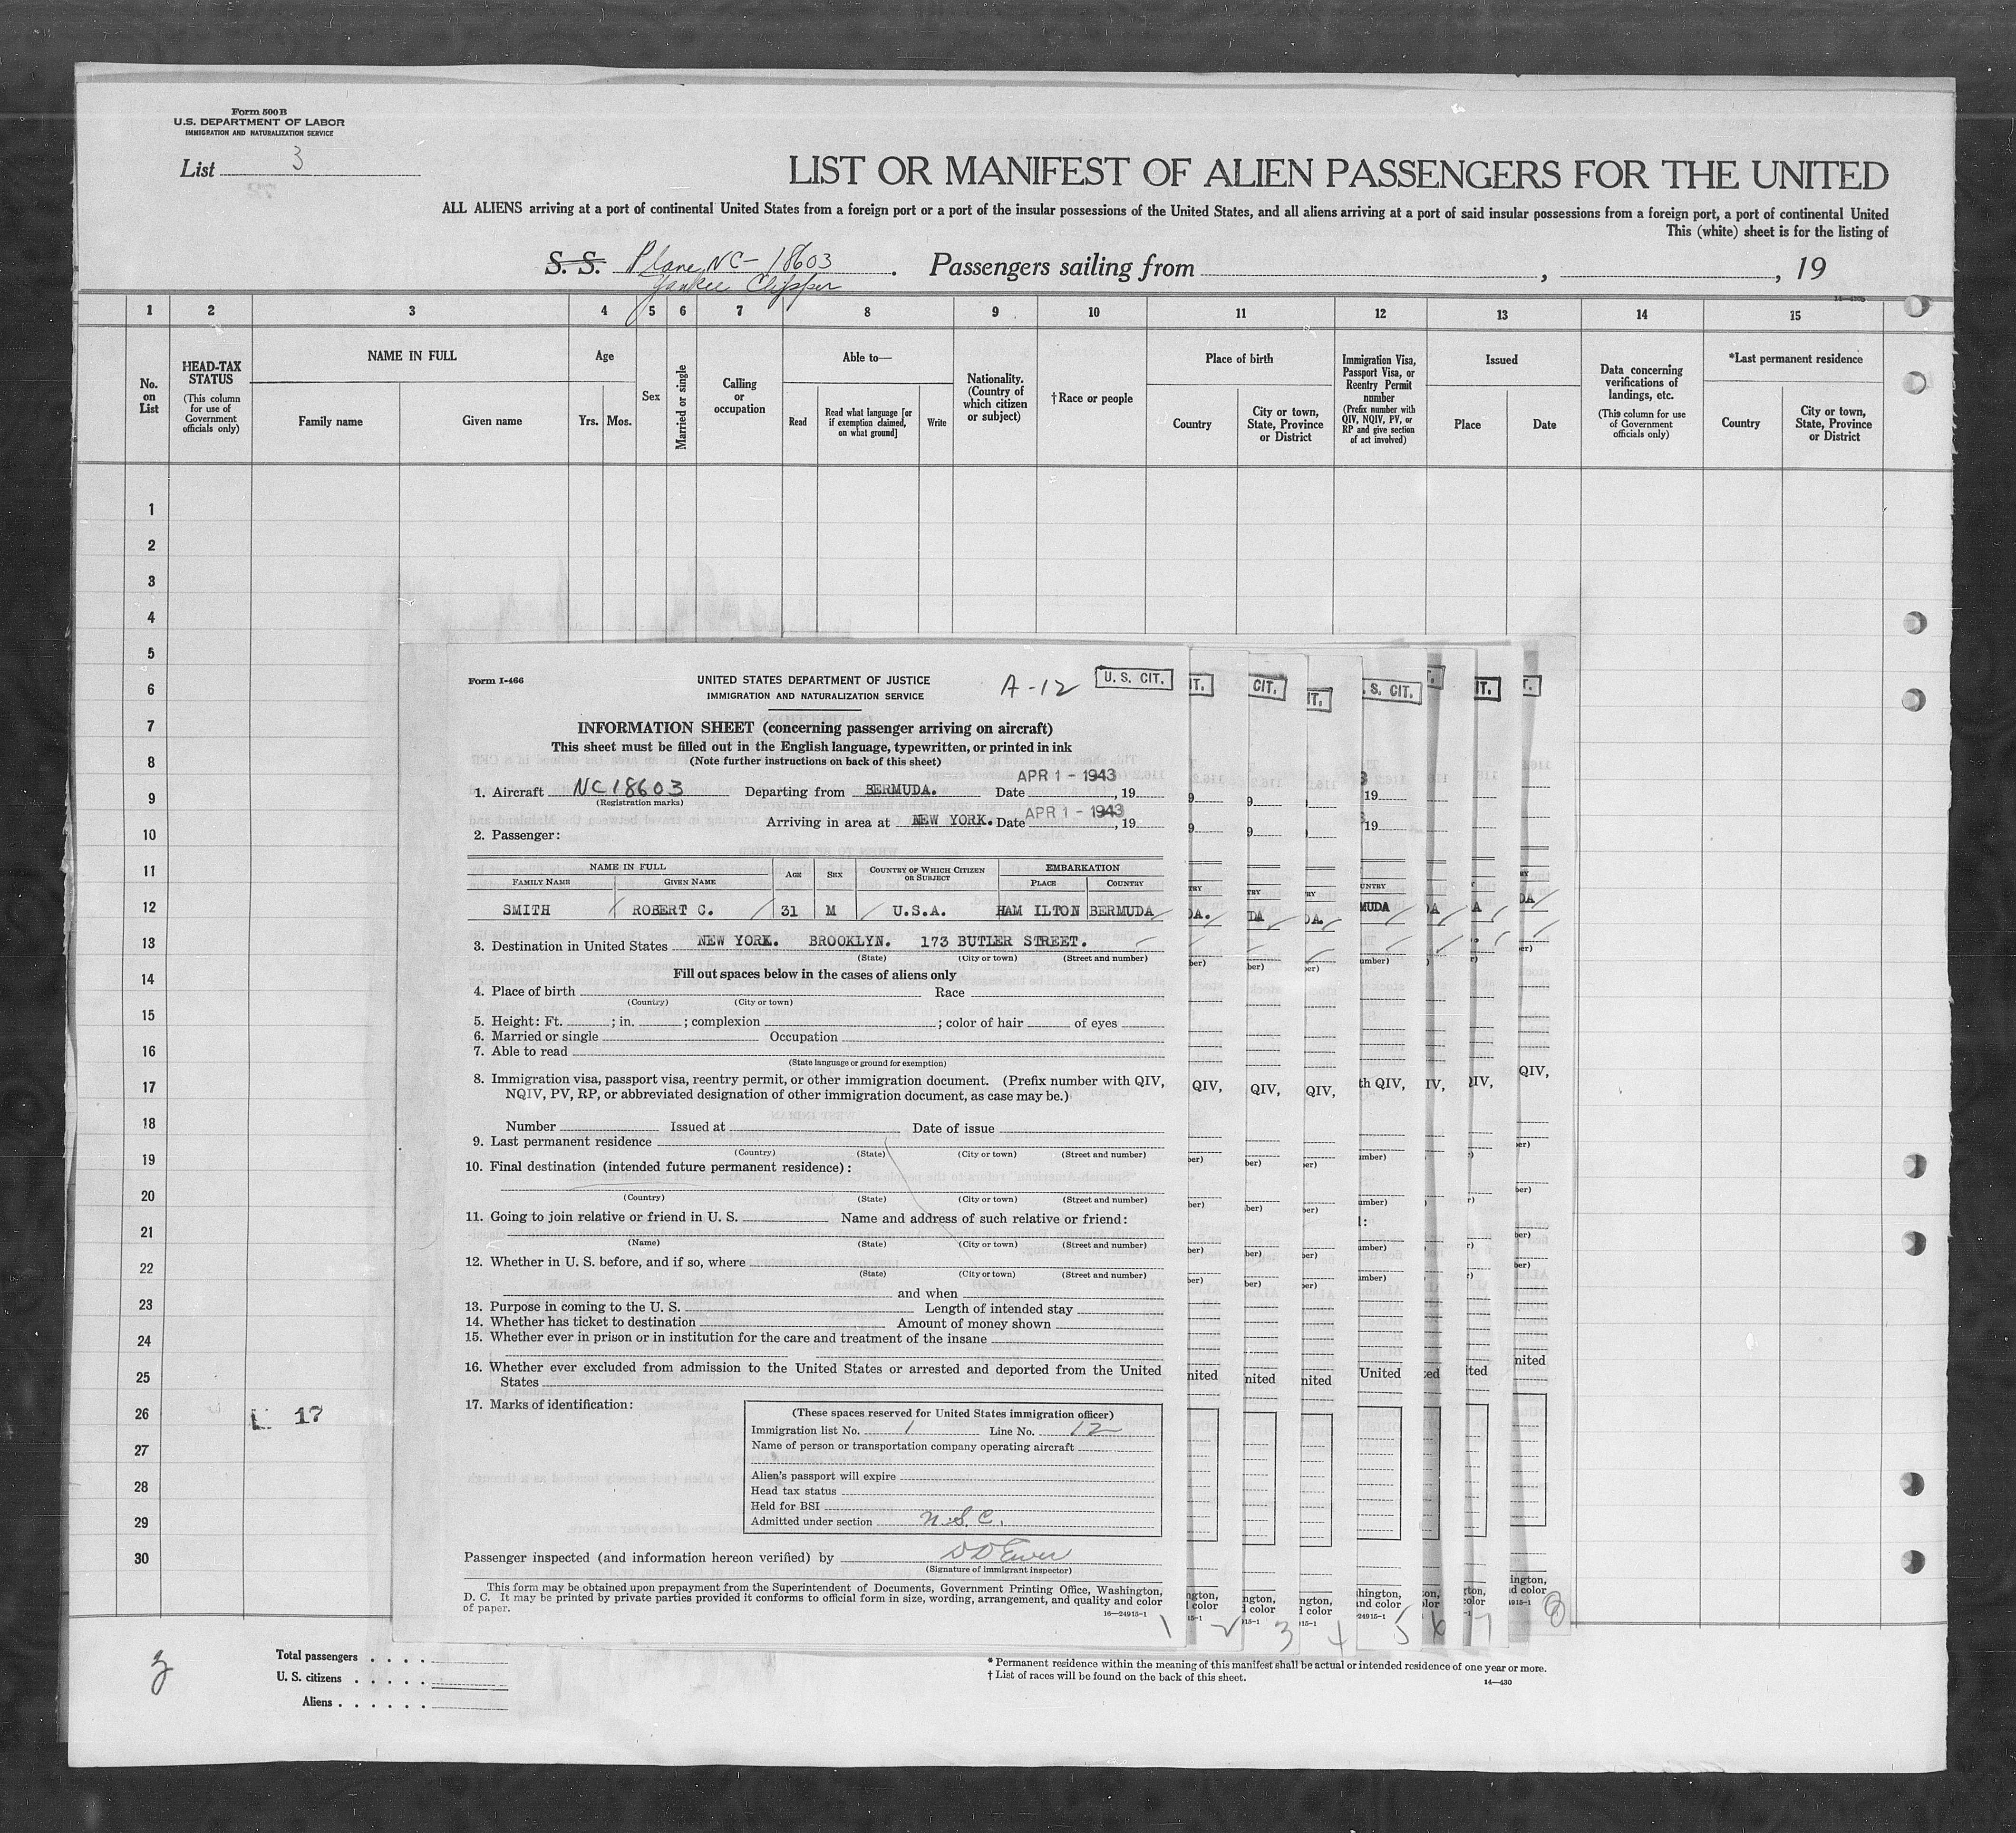 Form 500B
U.S. DEPARTMENT OF LABOR
IMMIGRATION AND NATURALIZATION SERVICE
List 3
LIST OR MANIFEST OF ALIEN PASSENGERS FOR THE UNITED
ALL ALIENS arriving at a port of continental United States from a foreign port or a port of the insular possessions of the United States, and all aliens arriving at a port of said insular possessions from a foreign port, a port of continental United
This (white) sheet is for the listing of
S. S. Plane NC-18603 . Passengers sailing from , , 19
Yankee Clipper
1 2 3 4 5 6 7 8 9 10 11 12 13 14 15
No. on List
HEAD-TAX STATUS
(This column for use of Government officials only)
NAME IN FULL
Family name Given name
Age
Yrs. Mos.
Sex
Married or single
Calling or occupation
Able to—
Read
Read what language [or if exemption claimed, on what ground]
Write
Nationality. (Country of which citizen or subject)
†Race or people
Place of birth
Country
City or town, State, Province or District
Immigration Visa, Passport Visa, or Reentry Permit number
(Prefix number with QIV, NQIV, PV, or RP and give section of act involved)
Issued
Place Date
Data concerning verifications of landings, etc.
(This column for use of Government officials only)
*Last permanent residence
Country
City or town, State, Province or District
1
2
3
4
5
6
7
8
9
10
11
12
13
14
15
16
17
18
19
20
21
22
23
24
25
26 17
27
28
29
30
Form I-466
UNITED STATES DEPARTMENT OF JUSTICE
IMMIGRATION AND NATURALIZATION SERVICE
A-12
U. S. CIT.
INFORMATION SHEET (concerning passenger arriving on aircraft)
This sheet must be filled out in the English language, typewritten, or printed in ink
(Note further instructions on back of this sheet)
APR 1 - 1943
1. Aircraft NC18603 Departing from BERMUDA. Date , 19
(Registration marks)
APR 1 - 1943
Arriving in area at NEW YORK. Date , 19
2. Passenger:
NAME IN FULL
FAMILY NAME GIVEN NAME
AGE SEX
COUNTRY OF WHICH CITIZEN OR SUBJECT
EMBARKATION
PLACE COUNTRY
SMITH ROBERT C. 31 M U.S.A. HAM ILTON BERMUDA
3. Destination in United States NEW YORK. BROOKLYN. 173 BUTLER STREET.
(State) (City or town) (Street and number)
Fill out spaces below in the cases of aliens only
4. Place of birth Race
(Country) (City or town)
5. Height: Ft. ; in. ; complexion ; color of hair of eyes
6. Married or single Occupation
7. Able to read
(State language or ground for exemption)
8. Immigration visa, passport visa, reentry permit, or other immigration document. (Prefix number with QIV,
NQIV, PV, RP, or abbreviated designation of other immigration document, as case may be.)
Number Issued at Date of issue
9. Last permanent residence
(Country) (State) (City or town) (Street and number)
10. Final destination (intended future permanent residence):
(Country) (State) (City or town) (Street and number)
11. Going to join relative or friend in U. S. Name and address of such relative or friend:
(Name) (State) (City or town) (Street and number)
12. Whether in U. S. before, and if so, where
(State) (City or town) (Street and number)
and when
13. Purpose in coming to the U. S. Length of intended stay
14. Whether has ticket to destination Amount of money shown
15. Whether ever in prison or in institution for the care and treatment of the insane
16. Whether ever excluded from admission to the United States or arrested and deported from the United
States
17. Marks of identification:
(These spaces reserved for United States immigration officer)
Immigration list No. 1 Line No. 12
Name of person or transportation company operating aircraft
Alien's passport will expire
Head tax status
Held for BSI
Admitted under section
Passenger inspected (and information hereon verified) by
(Signature of immigrant inspector)
This form may be obtained upon prepayment from the Superintendent of Documents, Government Printing Office, Washington,
D. C. It may be printed by private parties provided it conforms to official form in size, wording, arrangement, and quality and color
of paper.
16—24915-1
1 2 3 4 5 6 7 8
Total passengers
U. S. citizens
Aliens
* Permanent residence within the meaning of this manifest shall be actual or intended residence of one year or more.
† List of races will be found on the back of this sheet.
14—430